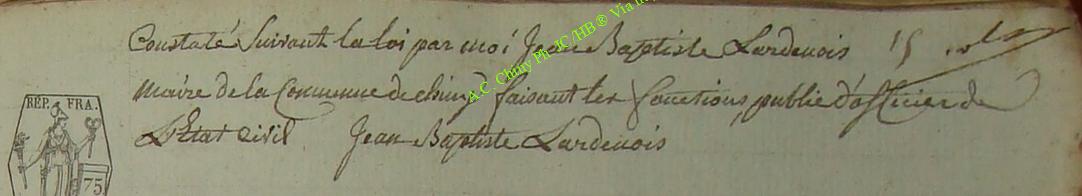 Constaté Suivant la loi par moi Jean Baptiste Lardenois
Maire de la Commune de chiny faisant les fonctions, public d'officier de
L'Etat civil Jean Baptiste Lardenois
RÉP. FRA.
75
A.C. Chiny Ph. JC/HB® Via